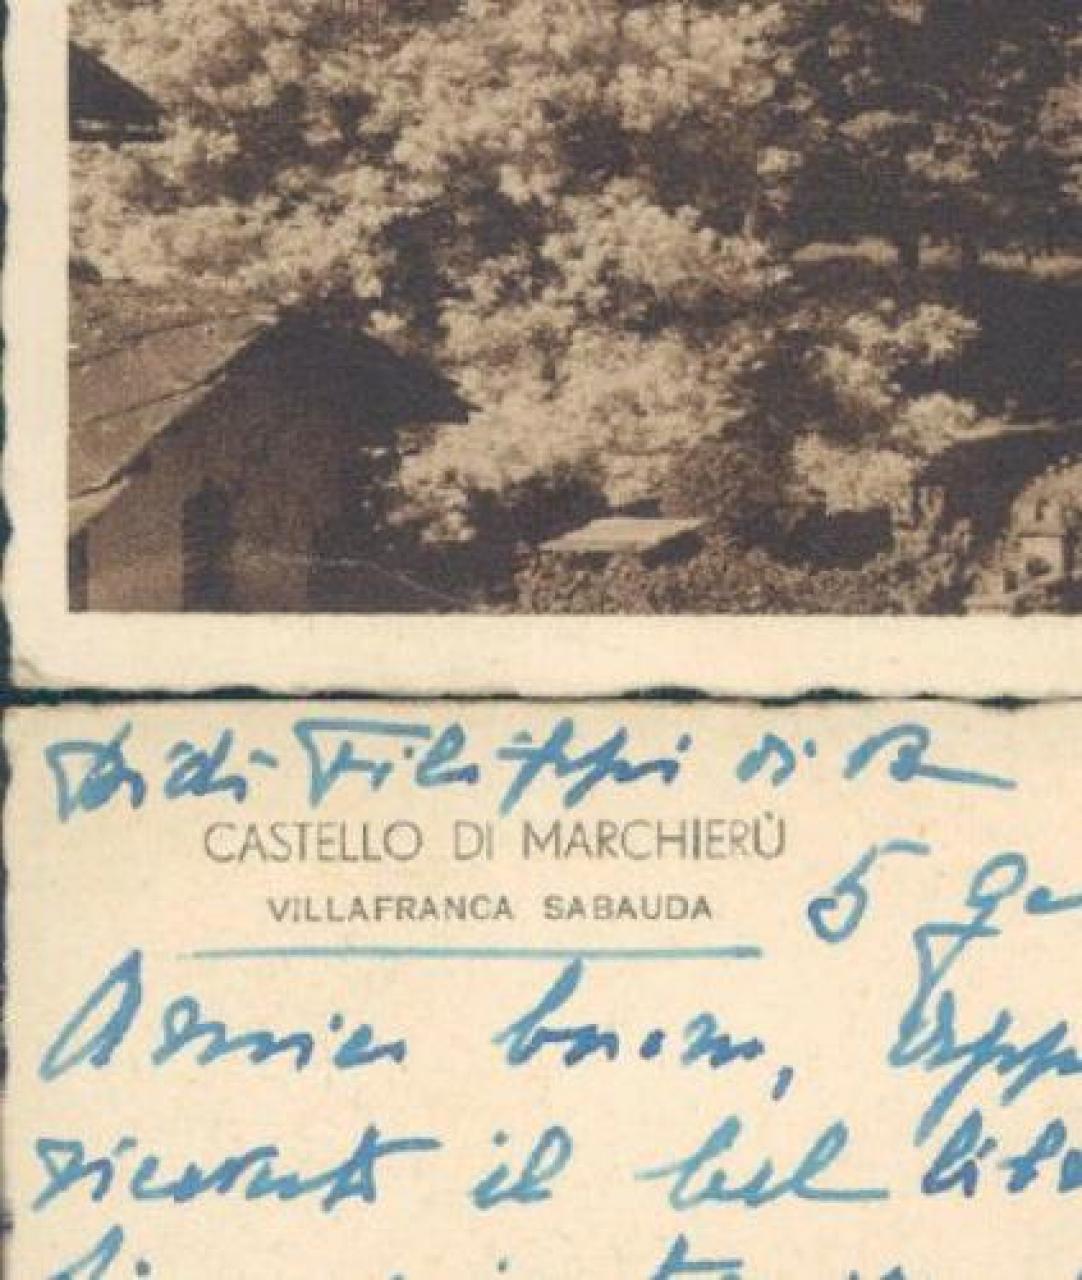 Didi Filippi di
CASTELLO DI MARCHIERÙ
VILLAFRANCA SABAUDA
5 Ge
Amico buono,
ricevuto il bel lib